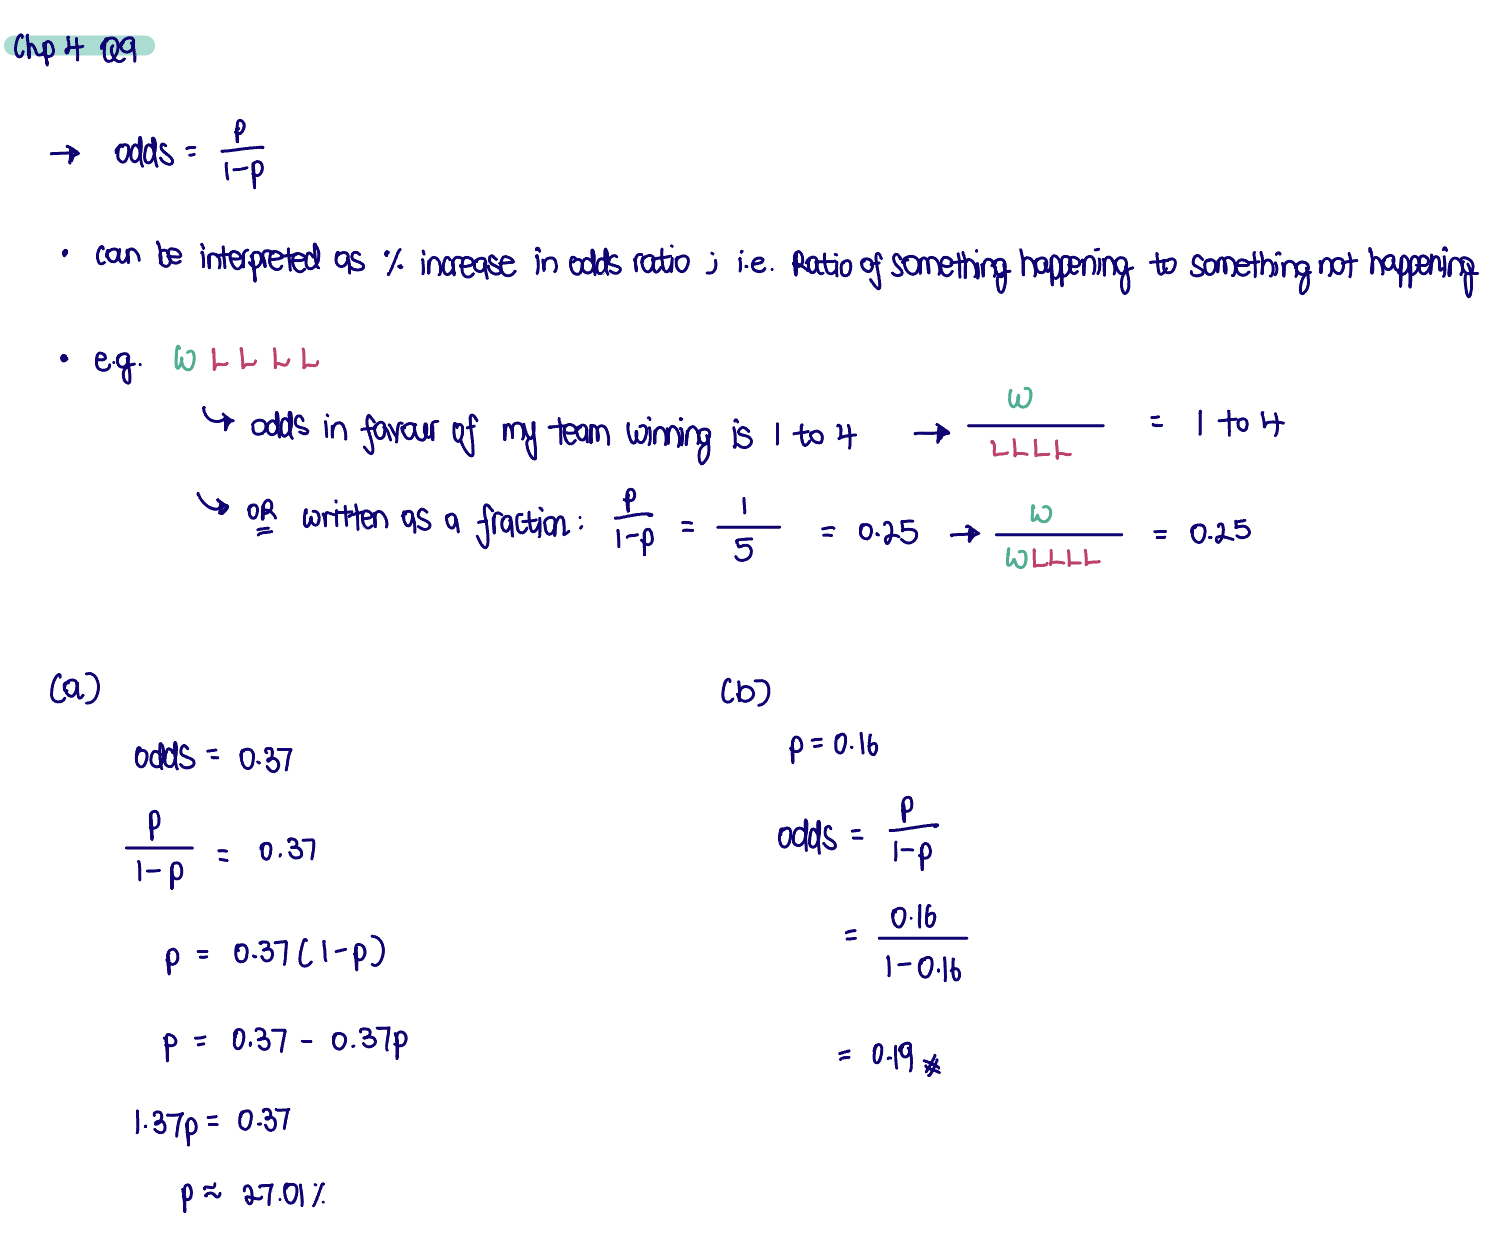 Chp 4 Q9
→ odds = p / 1-p
• can be interpreted as % increase in odds ratio ; i.e. Ratio of something happening to something not happening
• e.g. W L L L L
↳ odds in favour of my team winning is 1 to 4 → W / LLLL = 1 to 4
↳ OR written as a fraction: p / 1-p = 1 / 5 = 0.25 → W / WLLLL = 0.25
(a)
odds = 0.37
p / 1-p = 0.37
p = 0.37(1-p)
p = 0.37 - 0.37p
1.37p = 0.37
p ≈ 27.01%
(b)
p = 0.16
odds = p / 1-p
= 0.16 / 1-0.16
= 0.19